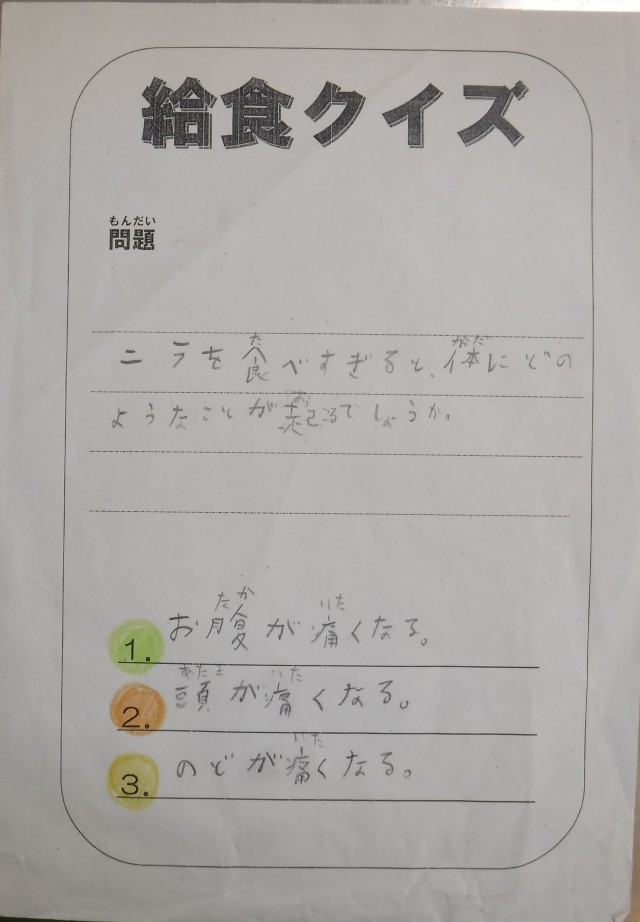 給食クイズ
もんだい
問題
た からだ
ニラを食べすぎると、体にどの
お
ようなことが起こるでしょうか。
なか いた
1. お腹が痛くなる。
あたま いた
2. 頭が痛くなる。
いた
3. のどが痛くなる。